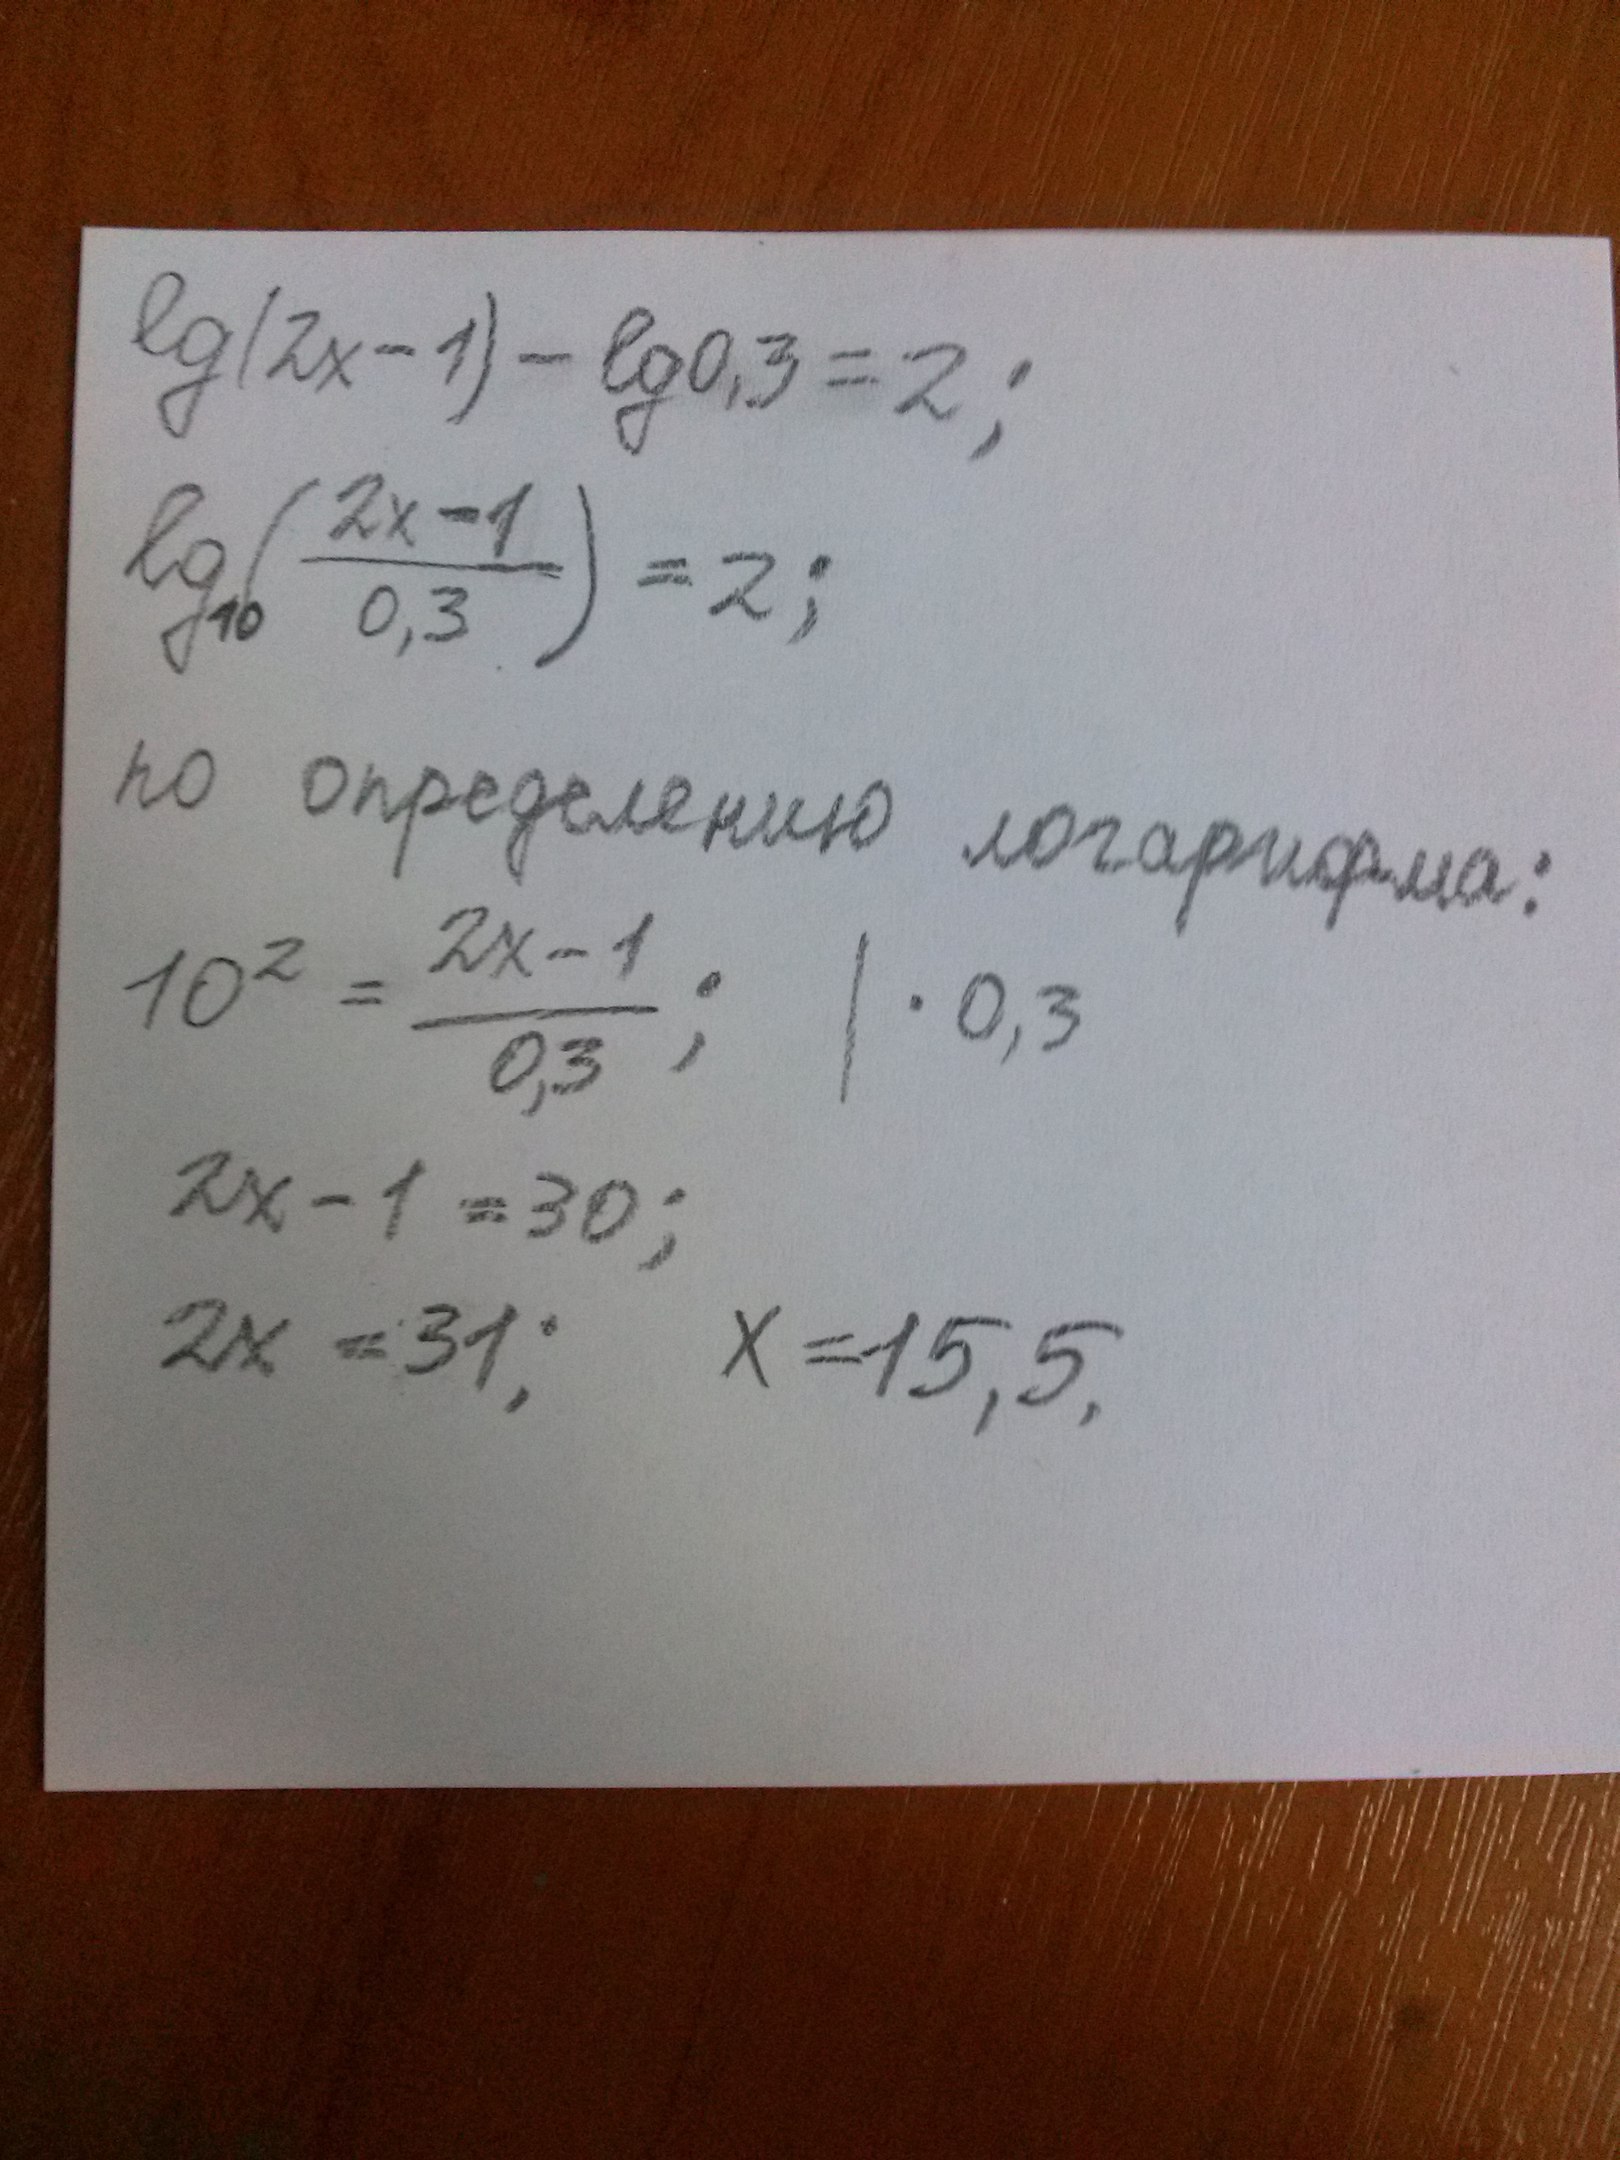 lg(2x-1) - lg0,3 = 2;
lg₁₀((2x-1)/0,3) = 2;
по определению логарифма:
10² = (2x-1)/0,3; | · 0,3
2x-1 = 30;
2x = 31; x = 15,5.